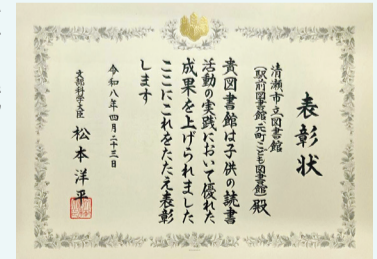 表彰状
清瀬市立図書館
（駅前図書館・元町こども図書館）殿
貴図書館は子供の読書
活動の実践において優れた
成果を上げられました
ここにこれをたたえ表彰
します
令和八年四月二十三日
文部科学大臣 松本洋平